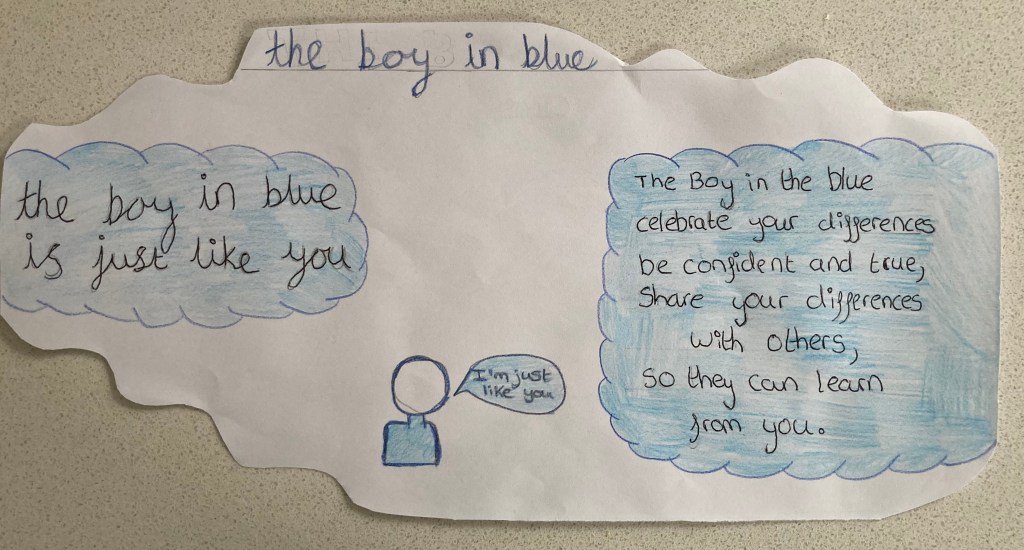 the boy in blue
the boy in blue
is just like you
The Boy in the blue
celebrate your differences
be confident and true,
Share your differences
with others,
so they can learn
from you.
I'm just
like you